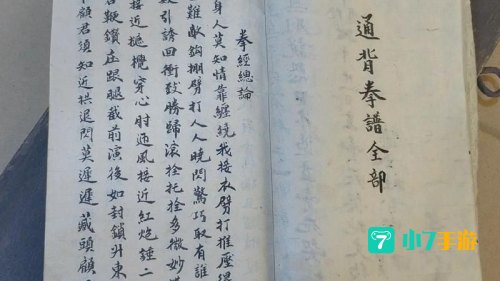 通背拳譜全部
拳經總論
身人莫知情靠纏繞我接衣劈打推壓得
難敵鈎掤劈打人人曉閃驚巧取有誰
引誘回衝致勝歸滾拴托拴多微妙
接近拋攪穿心肘迎風接近紅炮錘二
鞭鑽庄跟腿截前演後如封鎖升東
下顧君須知近拱退閃莫遲遲藏頭顧
小7手游